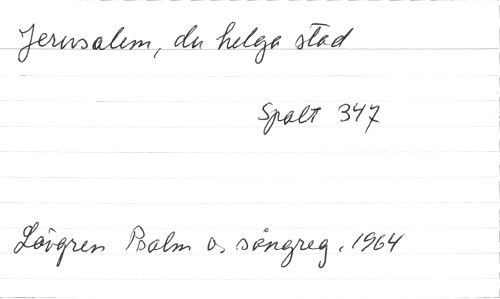 Jerusalem, du helga stad
Spalt 347
Lövgren Psalm o, sångreg. 1964